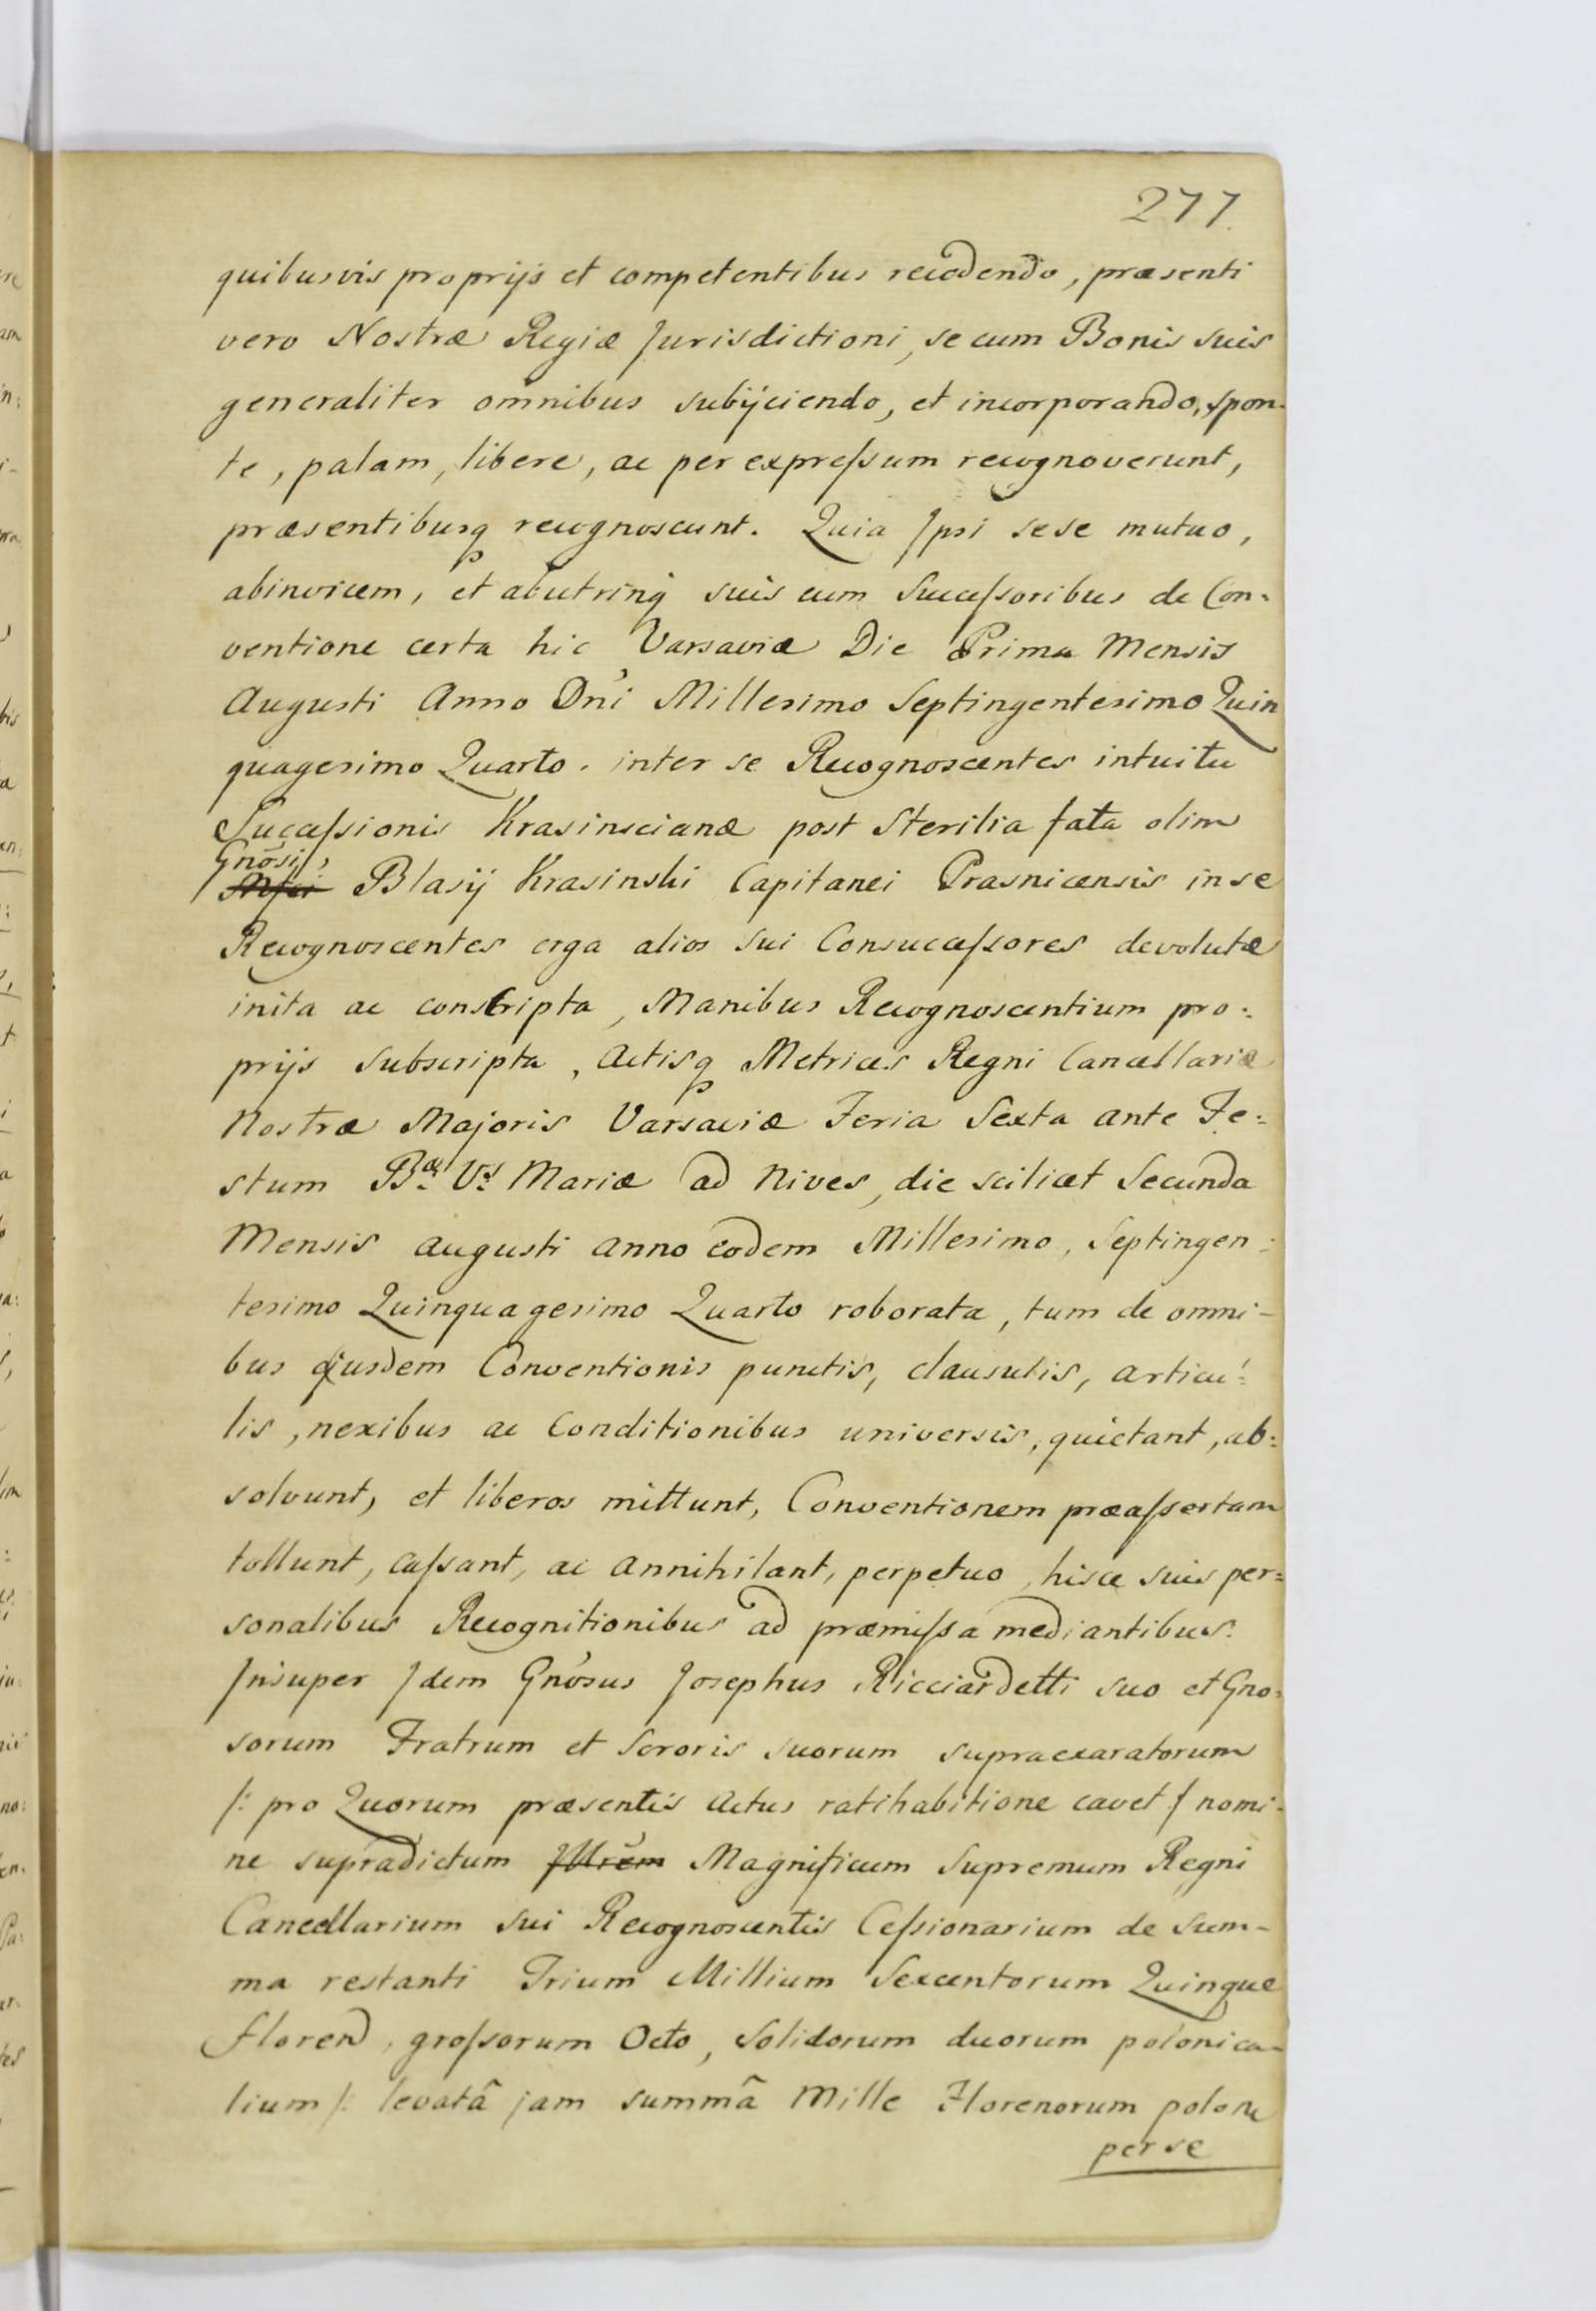 277.
quibusvis proprijs et competentibus recedendo, præsenti
vero Nostræ Regiæ Jurisdictioni, se cum Bonis suis
generaliter omnibus subijciendo, et incorporando, spon-
te, palam, libere, ac per expreſsum recognoverunt,
præsentibusq recognoscunt. Quia Ipsi sese mutuo,
abinvicem, et abutrinq suis cum Succeſsoribus de Con-
ventione certa hic Varsaviæ Die Prima Mensis
Augusti Anno Dni Millesimo Septingentesimo Quin
quagesimo Quarto. inter se Recognoscentes intuitu
Succeſsionis Krasinscianæ post Sterilia fata olim
Gnosi
Blasij Krasinski Capitanei Prasnicensis in se
Recognoscentes erga alios sui Consucceſsores devolutæ
inita ac conscripta, Manibus Recognoscentium pro:
prijs subscripta, Actisq Metrices Regni Cancellariæ
Nostræ Majoris Varsaviæ Feria Sexta ante Fe:
stum Bæ Vs Mariæ ad Nives, die scilicet Secunda
Mensis Augusti Anno eodem Millesimo, Septingen:
tesimo Quinquagesimo Quarto roborata, tum de omni-
bus ejusdem Conventionis punctis, clausulis, articu:
lis, nexibus ac Conditionibus universis, quietant, ab:
solvunt, et liberos mittunt, Conventionem præaſsertam
tollunt, caſsant, ac annihilant, perpetuo, hisce suis per=
sonalibus Recognitionibus ad præmiſsa mediantibus.
Insuper Idem Gnosus Josephus Ricciardetti suo et Gno:
sorum Fratrum et Sororis suorum supraexaratorum
/: pro Quorum præsentis Actus ratihabitione cavet / nomi-
ne supradictum Illrem Magnificum Supremum Regni
Cancellarium sui Recognoscentis Ceſsionarium de Sum-
ma restanti Trium Millium Sexcentorum Quinque
floren, groſsorum Octo, Solidorum duorum polonica-
lium /: levatâ jam summâ Mille Florenorum polon
per se